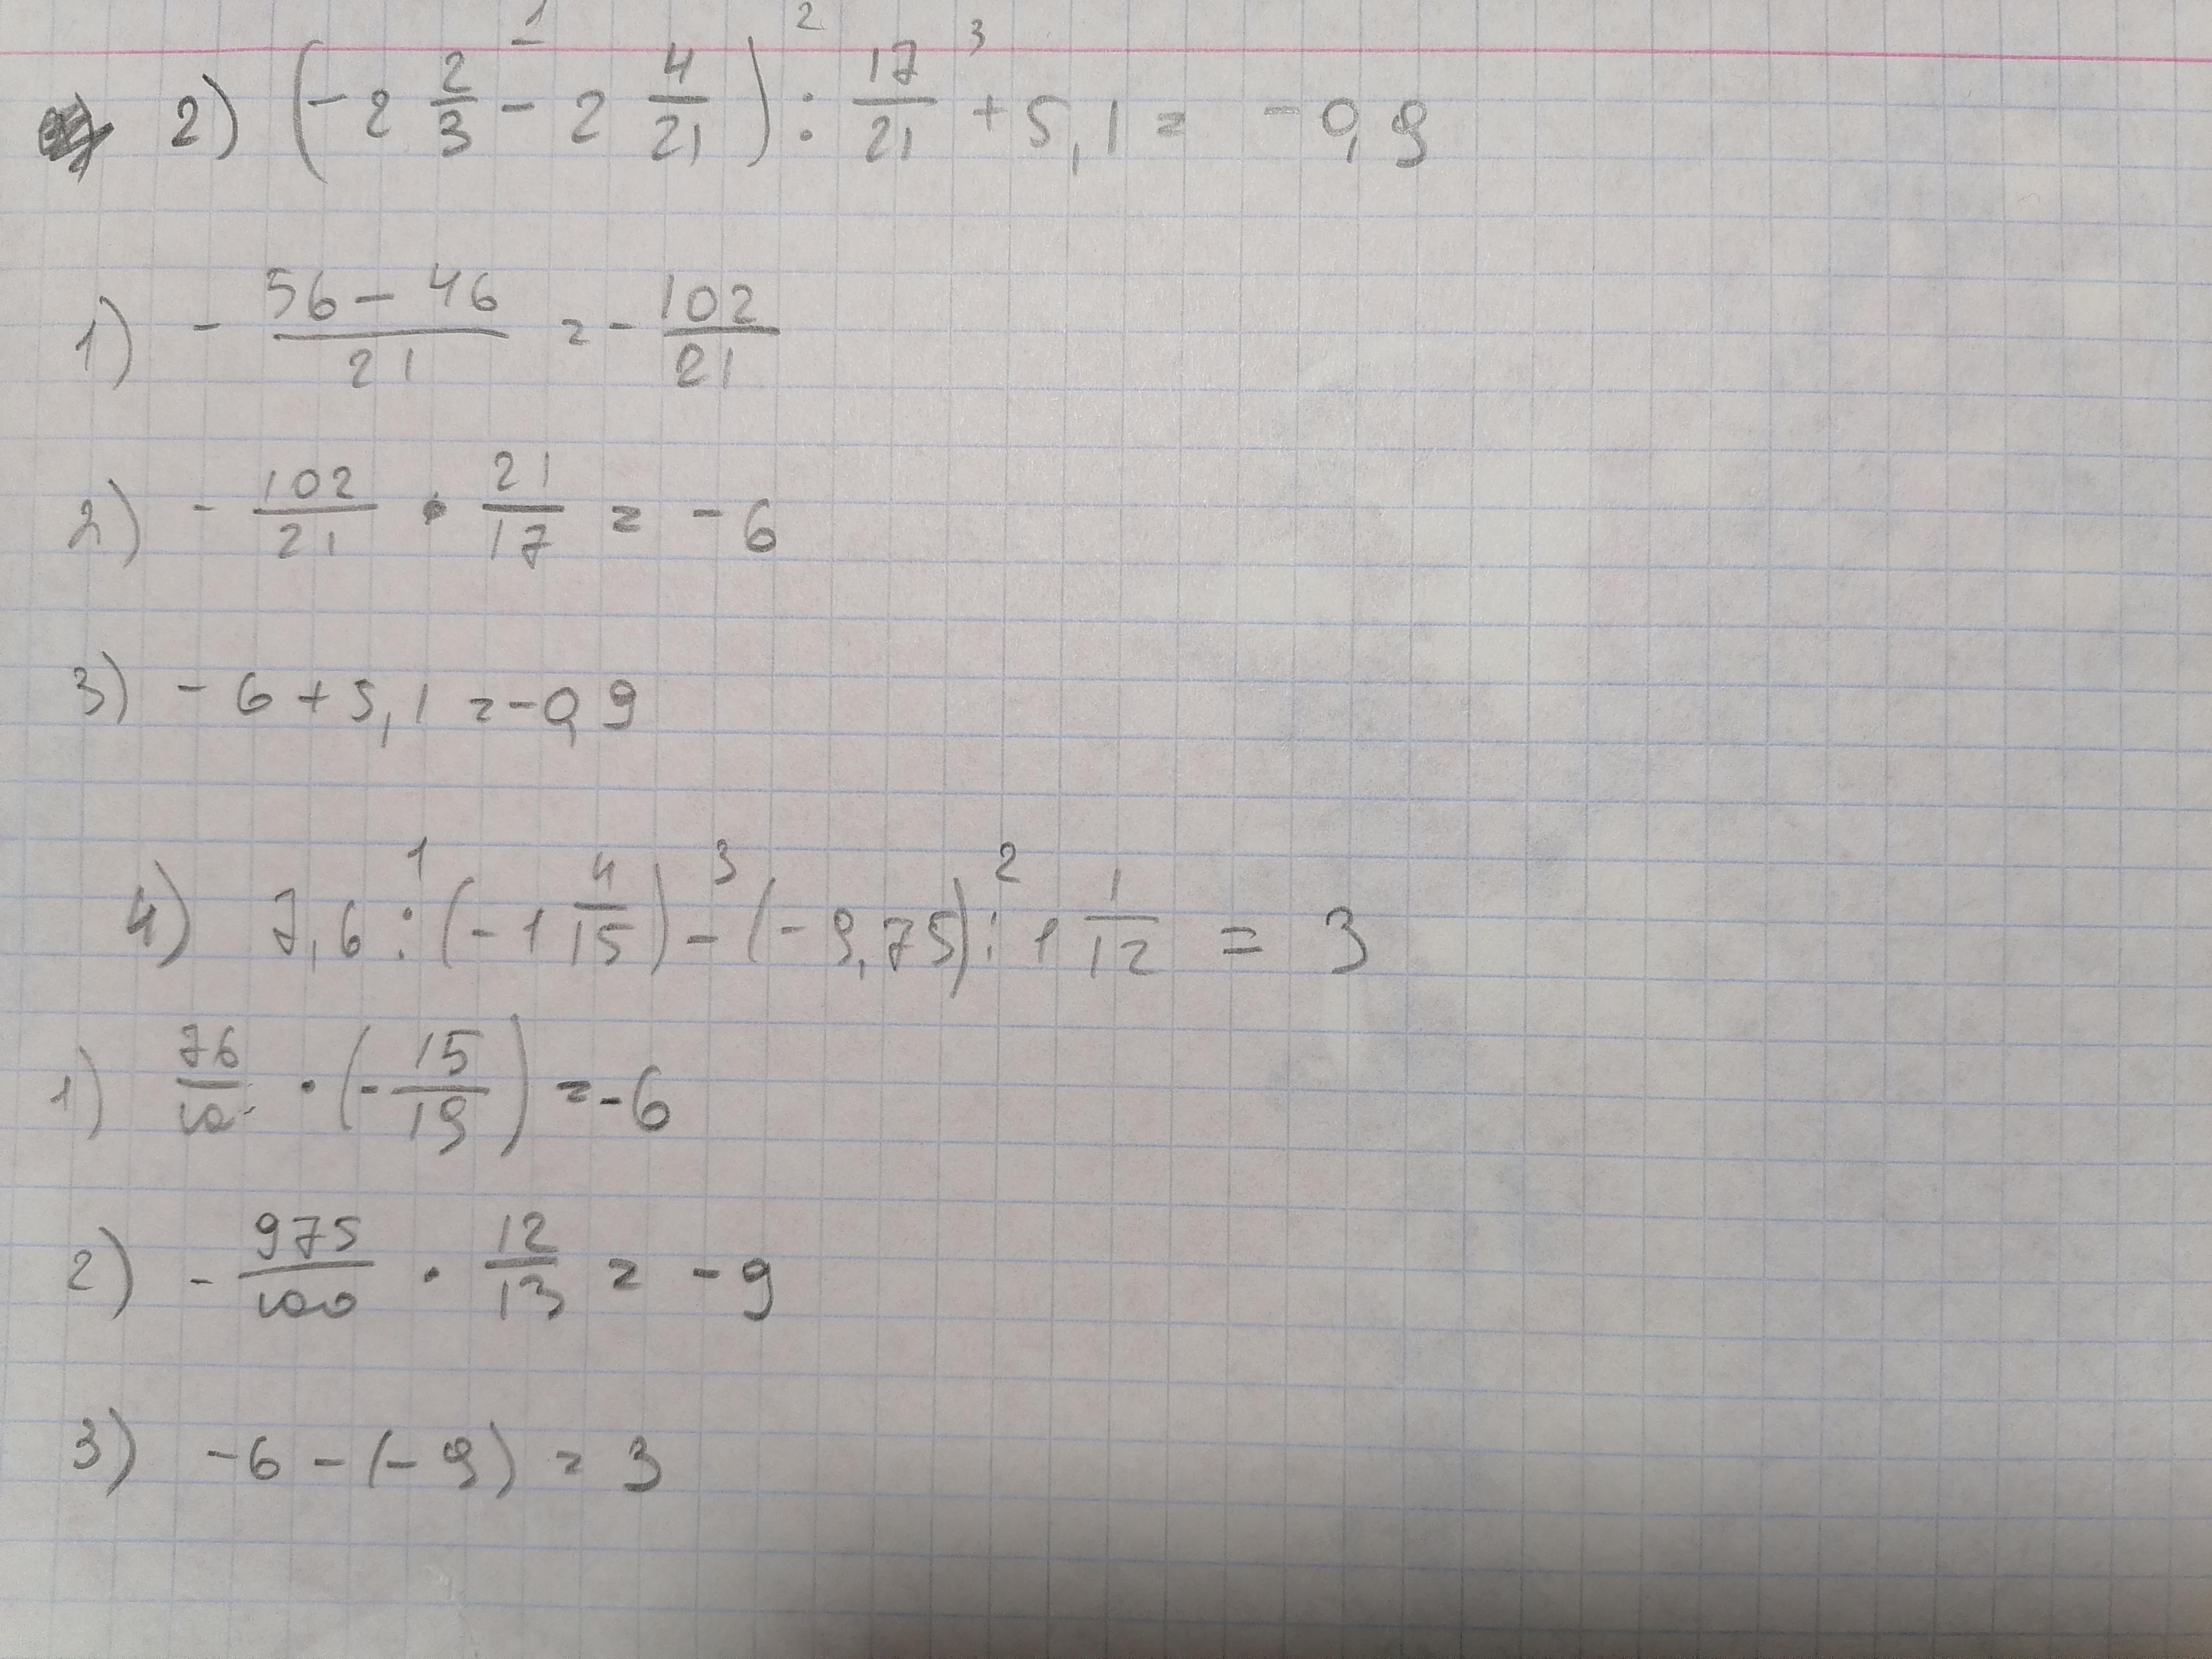 2) (-2 2/3 - 2 4/21) : 17/21 + 5,1 = -0,9
1) - (56 - 46)/21 = - 102/21
2) - 102/21 · 21/17 = -6
3) -6 + 5,1 = -0,9
4) 7,6 : (-1 4/15) - (-9,75) : 1 1/12 = 3
1) 76/10 · (- 15/19) = -6
2) - 975/100 · 12/13 = -9
3) -6 - (-9) = 3